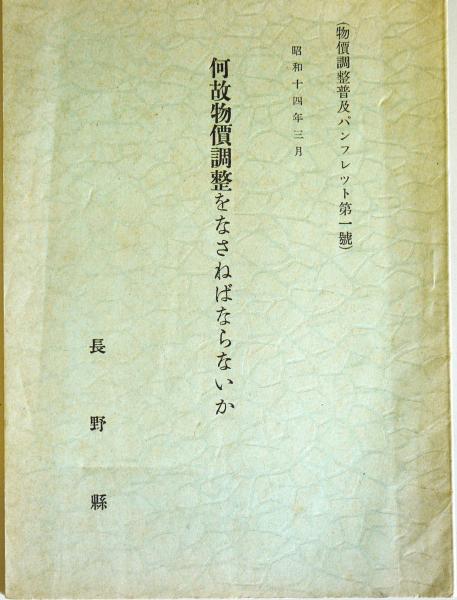 (物價調整普及パンフレット第一號)
昭和十四年三月
何故物價調整をなさねばならないか
長野縣